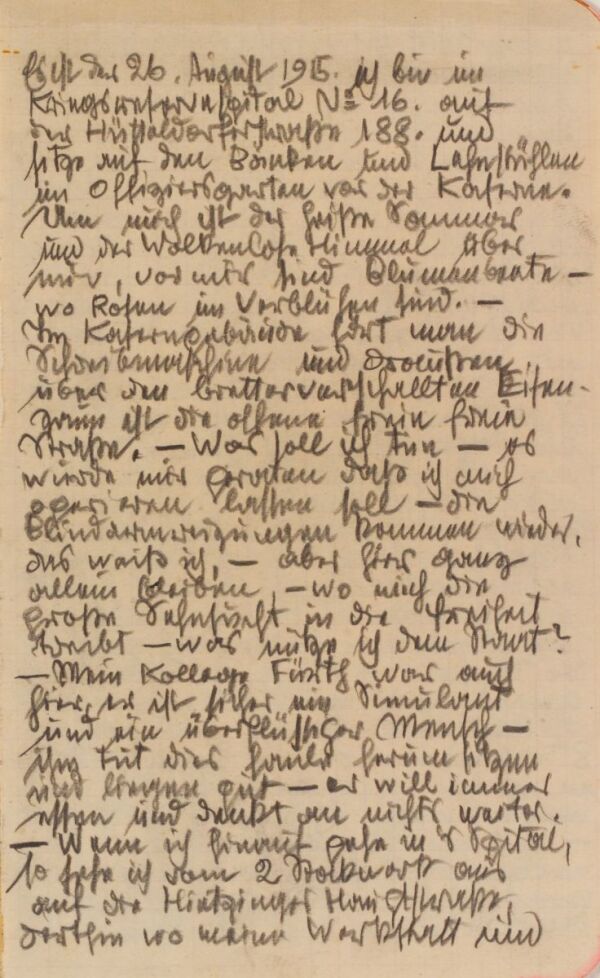 Es ist der 26. August 1915. ich bin im
Kriegsreservespital No 16. auf
der Hütteldorferstraße 188. und
sitze auf den Bänken und Lehnstühlen
im Offiziersgarten vor der Kaserne.
Um mich ist der heiße Sommer
und der Wolkenlose Himmel über
mir, vor mir sind Blumenbeete —
wo Rosen im Verblühen sind. —
Im Kaserngebäude hört man die
Schreibmaschine und draußen
über den bretterverschallten Eisen-
zaun ist die offene freie freie
Straße. — Was soll ich tun — es
wurde mir geraten daß ich mich
operieren lassen soll — die
Blinddarmreizungen kommen wieder,
das weiß ich, — aber hier ganz
allein bleiben, — wo mich die
große Sehnsucht in die Freiheit
treibt — was nütze ich dem Staat?
— Mein Kollege Fürth war auch
hier, er ist sicher ein Simulant
und ein überflüssiger Mensch —
ihm tut dies faule herum sitzen
und liegen gut — er will immer
essen und denkt an nichts weiter.
— Wenn ich hinauf gehe in's Spital,
so sehe ich vom 2 Stockwerk aus
auf die Hietzinger Hauptstraße,
dorthin wo meine Werkstatt und